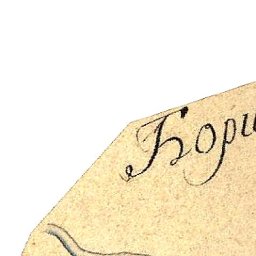 Бори